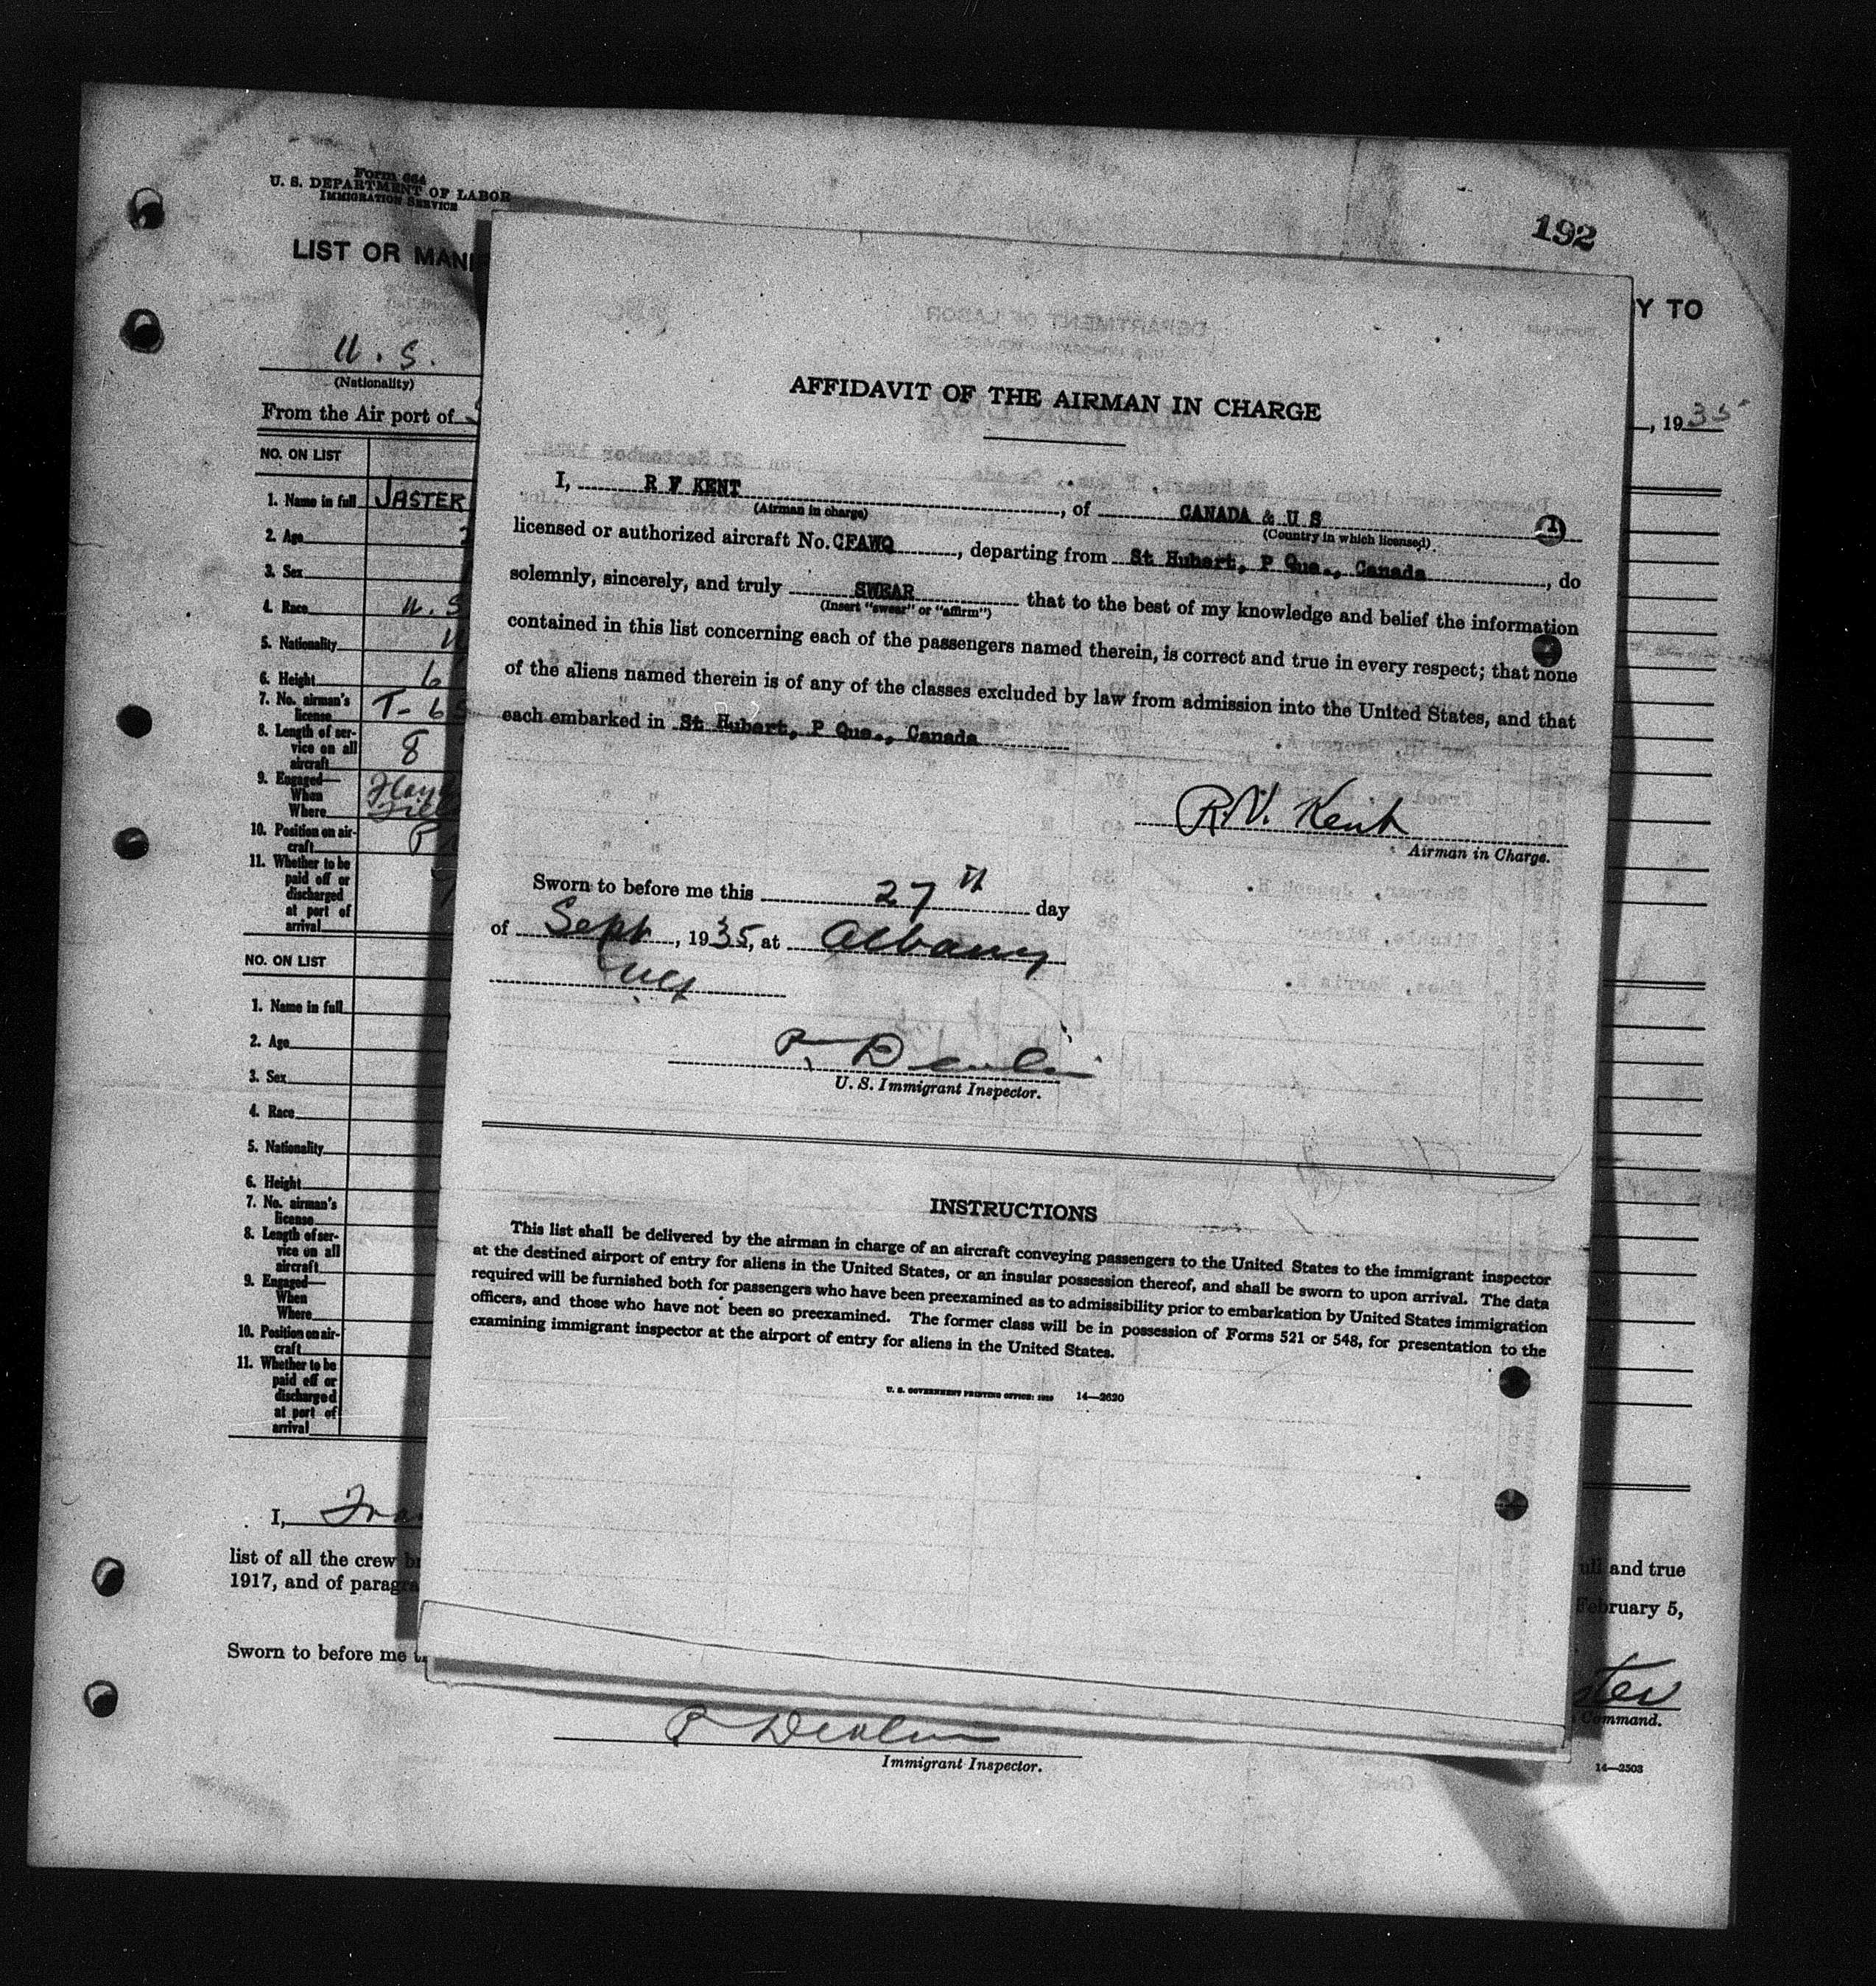 Form 664
U. S. DEPARTMENT OF LABOR
IMMIGRATION SERVICE
192
LIST OR MANI
Y TO
U. S.
(Nationality)
From the Air port of
, 1935
NO. ON LIST
1. Name in full JASTER
2. Age
3. Sex
4. Race U. S
5. Nationality U
6. Height 6
7. No. airman's
license T-65
8. Length of ser-
vice on all
aircraft 8
9. Engaged—
When
Where
10. Position on air-
craft P
11. Whether to be
paid off or
discharged
at port of
arrival
NO. ON LIST
1. Name in full
2. Age
3. Sex
4. Race
5. Nationality
6. Height
7. No. airman's
license
8. Length of ser-
vice on all
aircraft
9. Engaged—
When
Where
10. Position on air-
craft
11. Whether to be
paid off or
discharged
at port of
arrival
I, Fran
list of all the crew br
1917, and of paragra
Sworn to before me t
ull and true
February 5,
ster
Command.
P Devlin
Immigrant Inspector.
14—2503
AFFIDAVIT OF THE AIRMAN IN CHARGE
I, R V KENT, of CANADA & U S
(Airman in charge) (Country in which licensed)
licensed or authorized aircraft No. CFAWQ, departing from St Hubert, P Que., Canada, do
solemnly, sincerely, and truly SWEAR that to the best of my knowledge and belief the information
(Insert "swear" or "affirm")
contained in this list concerning each of the passengers named therein, is correct and true in every respect; that none
of the aliens named therein is of any of the classes excluded by law from admission into the United States, and that
each embarked in St Hubert, P Que., Canada
R.V. Kent
Airman in Charge.
Sworn to before me this 27th day
of Sept, 1935, at Albany
P Devlin
U. S. Immigrant Inspector.
INSTRUCTIONS
This list shall be delivered by the airman in charge of an aircraft conveying passengers to the United States to the immigrant inspector
at the destined airport of entry for aliens in the United States, or an insular possession thereof, and shall be sworn to upon arrival. The data
required will be furnished both for passengers who have been preexamined as to admissibility prior to embarkation by United States immigration
officers, and those who have not been so preexamined. The former class will be in possession of Forms 521 or 548, for presentation to the
examining immigrant inspector at the airport of entry for aliens in the United States.
U. S. GOVERNMENT PRINTING OFFICE: 14—2620